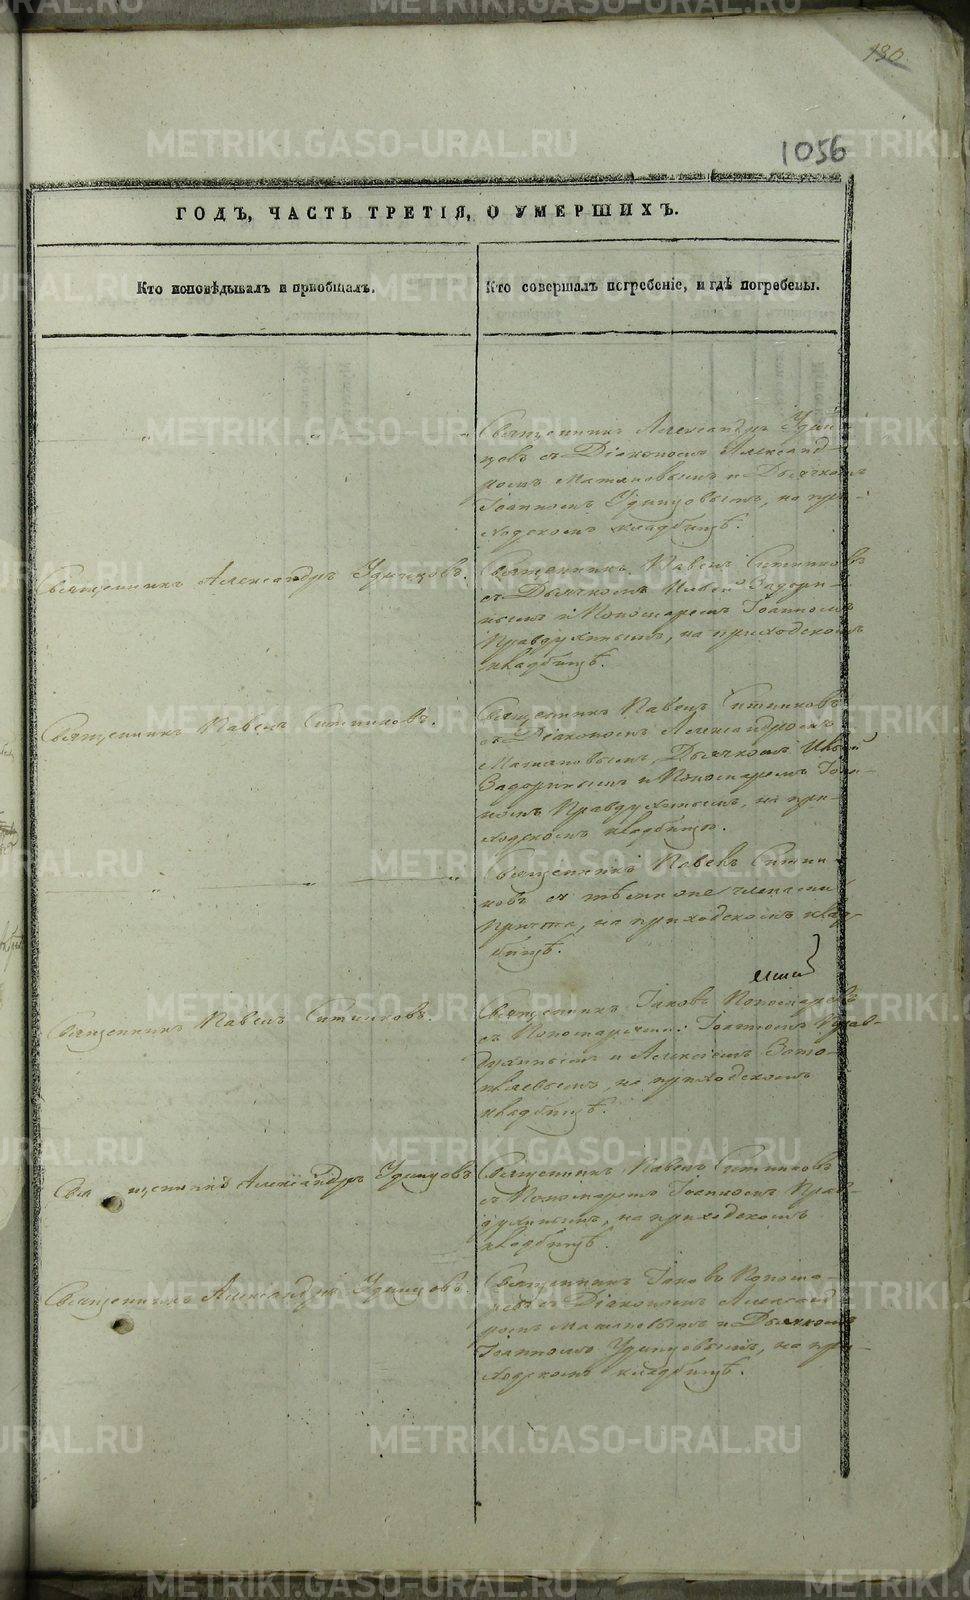 180
1056
ГОДЪ, ЧАСТЬ ТРЕТІЯ, О УМЕРШИХЪ.
Кто исповѣдывалъ и пріобщалъ.
Кто совершалъ погребеніе, и гдѣ погребены.
Священникъ Александръ Удин-
цовъ съ Діакономъ Александ-
ромъ и Дьячкомъ
Іоанномъ Удинцовымъ, на при-
ходскомъ кладбищѣ.
Священникъ Александръ Удинцовъ.
Священникъ Павелъ Ситниковъ
съ Дьячкомъ Ильей Задори-
нымъ и Пономаремъ Іоанномъ
Правдухинымъ, на приходскомъ
кладбищѣ.
Священникъ Павелъ Ситниковъ.
Священникъ Павелъ Ситниковъ
съ Діакономъ Александромъ
Дьячкомъ Ильей
Задоринымъ и Пономаремъ Іоан-
номъ Правдухинымъ, на при-
ходскомъ кладбищѣ.
Священникъ Павелъ Ситни-
ковъ съ тѣми же членами
причта, на приходскомъ клад-
бищѣ.
Священникъ Павелъ Ситниковъ.
Священникъ Іаковъ Пономаревъ
съ Пономарями: Іоанномъ Прав-
духинымъ и Алексіемъ
на приходскомъ
кладбищѣ.
Священникъ Александръ Удинцовъ
Священникъ Павелъ Ситниковъ
съ Пономаремъ Іоанномъ Прав-
духинымъ, на приходскомъ
кладбищѣ.
Священникъ Александръ Удинцовъ.
Священникъ Іаковъ Понома-
ревъ съ Діакономъ Александ-
ромъ и Дьячкомъ
Іоанномъ Удинцовымъ, на при-
ходскомъ кладбищѣ.
METRIKI.GASO-URAL.RU